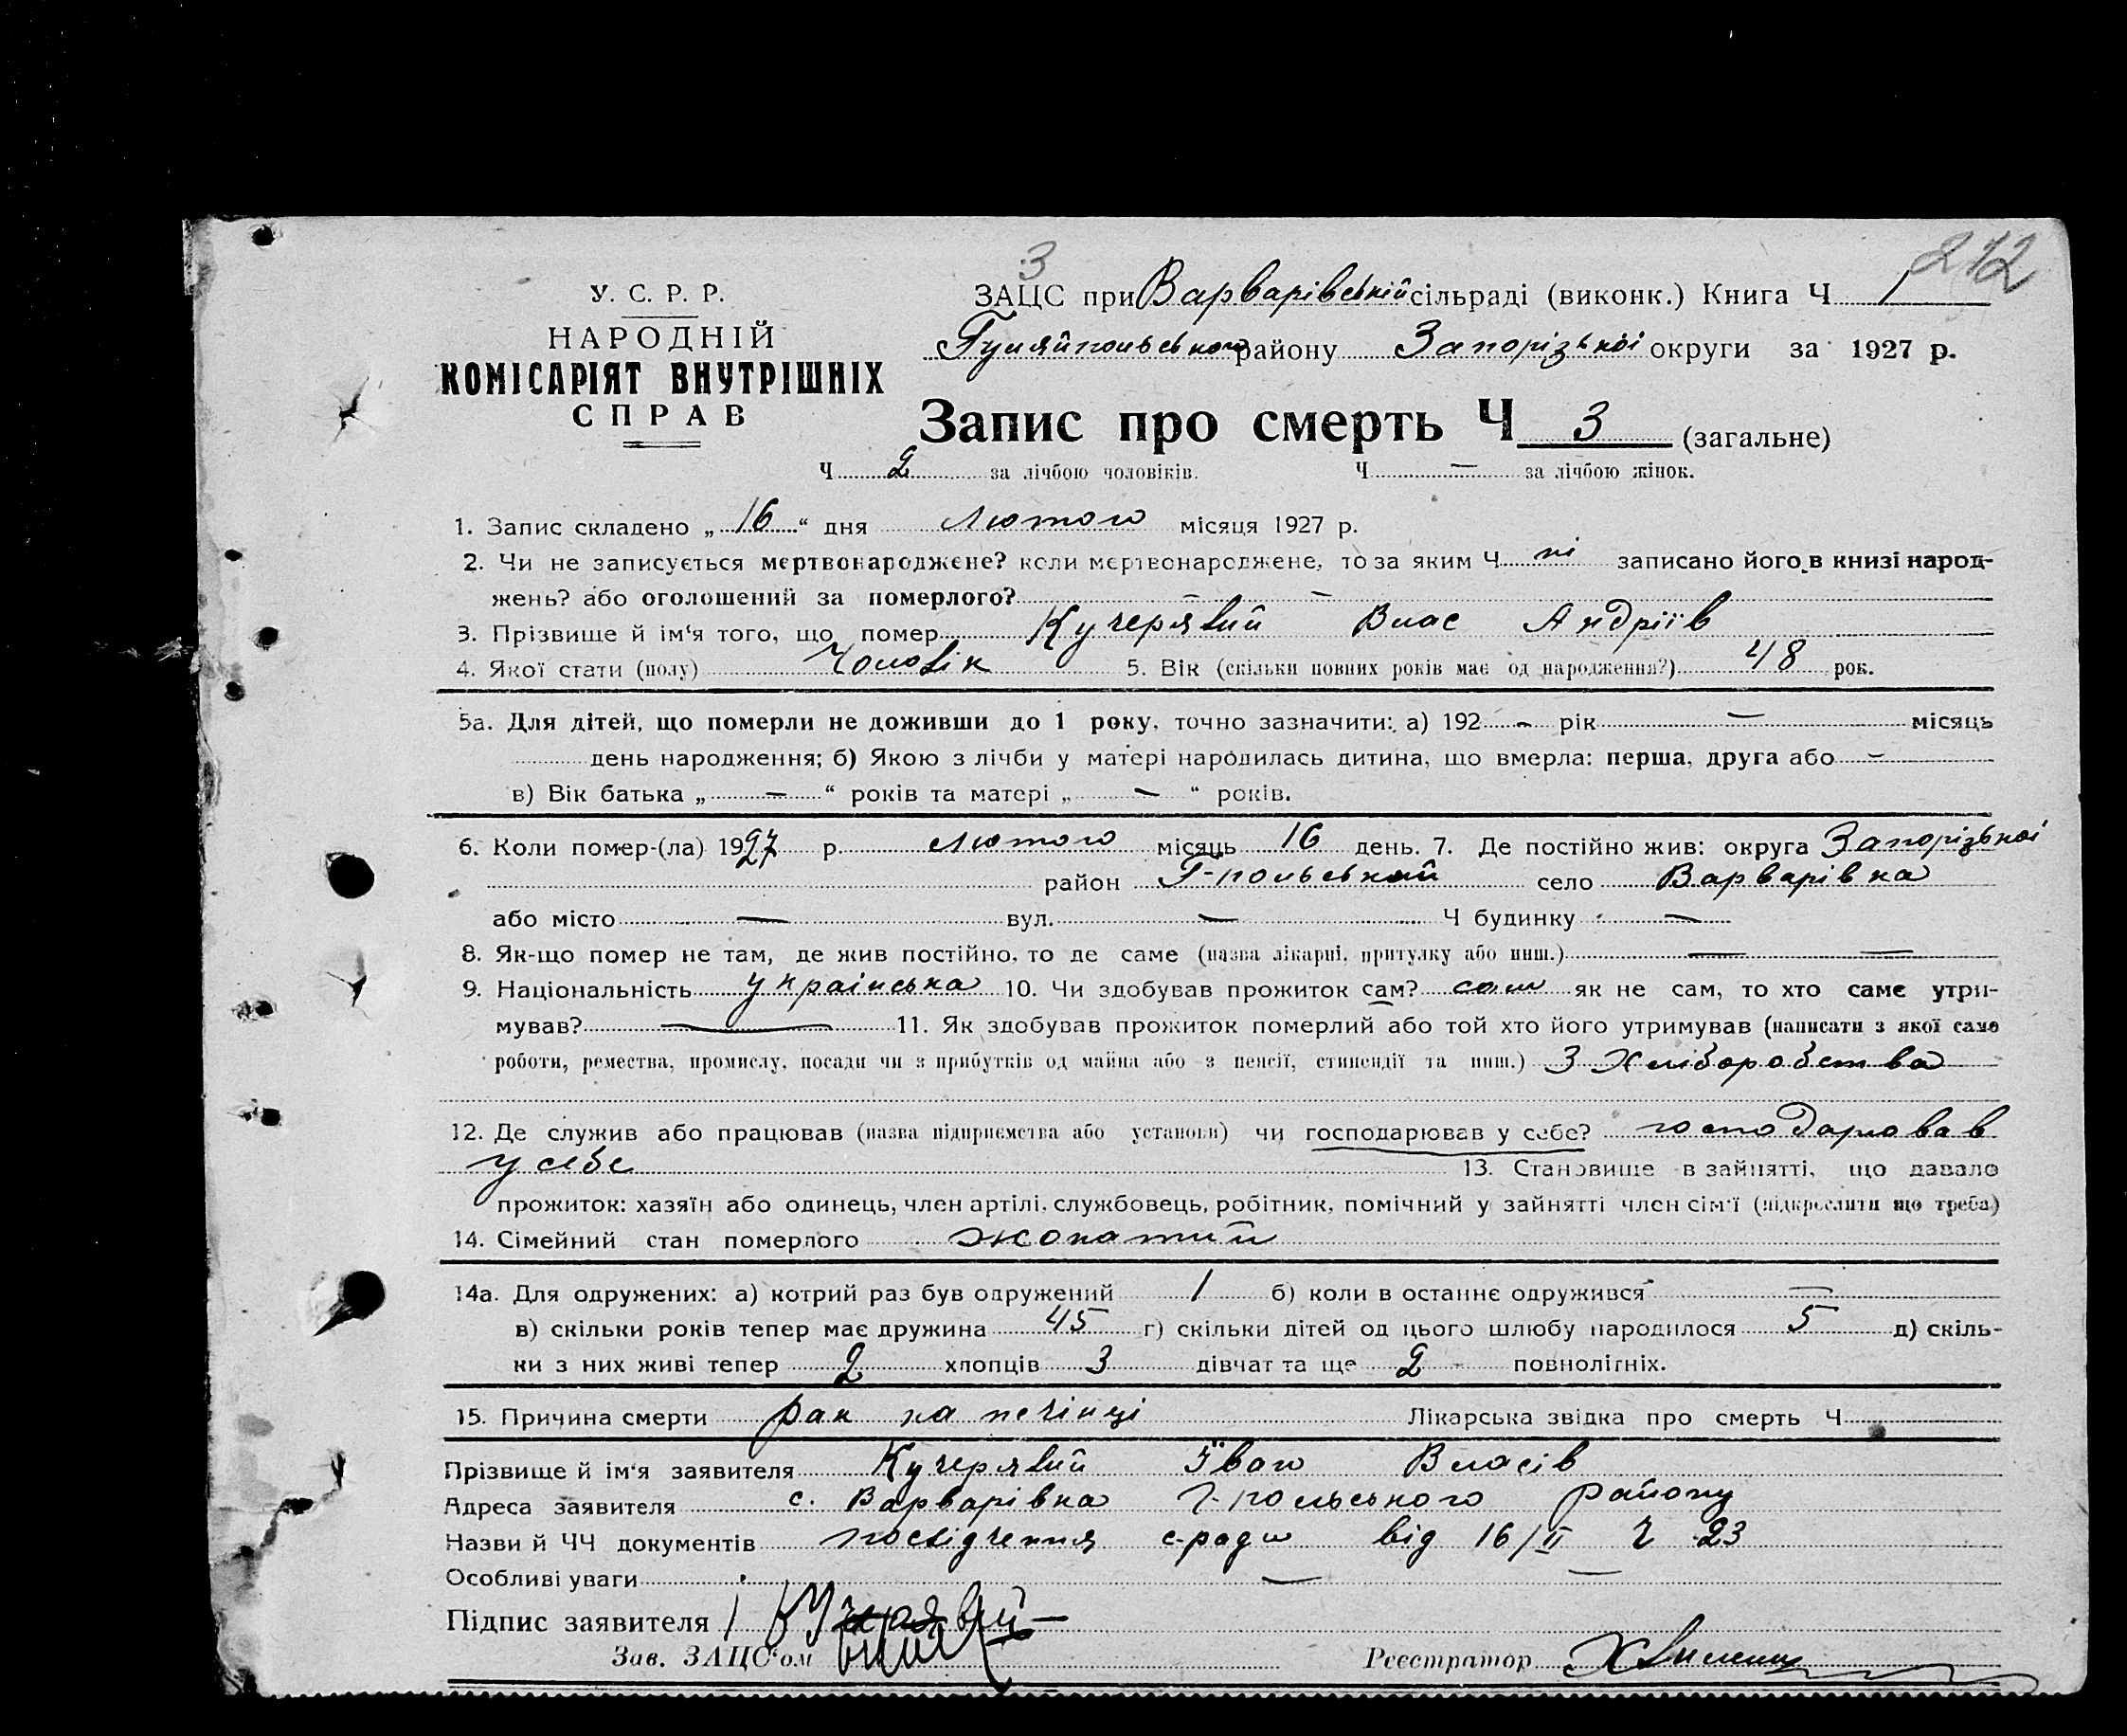 212
3
У. С. Р. Р.
НАРОДНІЙ
КОМІСАРІЯТ ВНУТРІШНІХ
СПРАВ
ЗАЦС при Варварівській сільраді (виконк.) Книга Ч 1
Гуляйпольського району Запорізької округи за 1927 р.
Запис про смерть Ч 3 (загальне)
Ч 2 за лічбою чоловіків. Ч — за лічбою жінок.
1. Запис складено „ 16 “ дня Лютого місяця 1927 р.
2. Чи не записується мертвонароджене? коли мертвонароджене, то за яким Ч ні записано його в книзі народ-
жень? або оголошений за померлого? — —
3. Прізвище й ім‘я того, що помер Кучерявий Влас Андріїв
4. Якої стати (полу) Чоловік 5. Вік (скільки повних років має од народження?) 48 рок.
5а. Для дітей, що померли не доживши до 1 року, точно зазначити: а) 192 - рік — місяць
день народження; б) Якою з лічби у матері народилась дитина, що вмерла: перша, друга або —
в) Вік батька „ — “ років та матері „ — “ років.
6. Коли помер-(ла) 1927 р. Лютого місяць 16 день. 7. Де постійно жив: округа Запорізької
район Г-польський село Варварівка
або місто — вул. — Ч будинку —
8. Як-що помер не там, де жив постійно, то де саме (назва лікарні, притулку або инш.) — —
9. Національність українська 10. Чи здобував прожиток сам? сам як не сам, то хто саме утри-
мував? — 11. Як здобував прожиток померлий або той хто його утримував (написати з якої саме
роботи, ремества, промислу, посади чи з прибутків од майна або з пенсії, стипендії та инш.) З Хліборобства
12. Де служив або працював (назва підприємства або установи) чи господарював у себе? господарював
у себе 13. Становище в зайнятті, що давало
прожиток: хазяїн або одинець, член артілі, службовець, робітник, помічний у зайнятті член сім‘ї (підкреслити що треба)
14. Сімейний стан померлого жонатий
14а. Для одружених: а) котрий раз був одружений 1 б) коли в останнє одружився —
в) скільки років тепер має дружина 45 г) скільки дітей од цього шлюбу народилося 5 д) скіль-
ки з них живі тепер 2 хлопців 3 дівчат та ще 2 - повнолітніх.
15. Причина смерти рак на печінці Лікарська звідка про смерть Ч
Прізвище й ім‘я заявителя Кучерявий Іван Власів
Адреса заявителя с. Варварівка Г-польського району
Назви й ЧЧ документів посвідчення с-ради від 16/II Ч 23
Особливі уваги — —
Підпис заявителя Кучерявий
Зав. ЗАЦС‘ом
Реєстратор